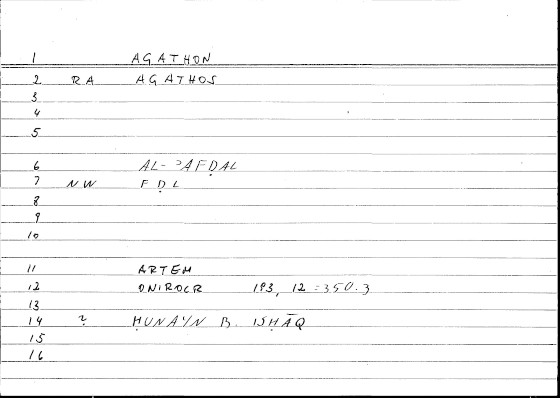 1 AGATHON
2 RA AGATHOS
3
4
5
6 AL-ʾAFḌAL
7 NW FḌL
8
9
10
11 ARTEM
12 ONIROCR 193, 12 = 350.3
13
14 ? ḤUNAYN B. ISḤĀQ
15
16